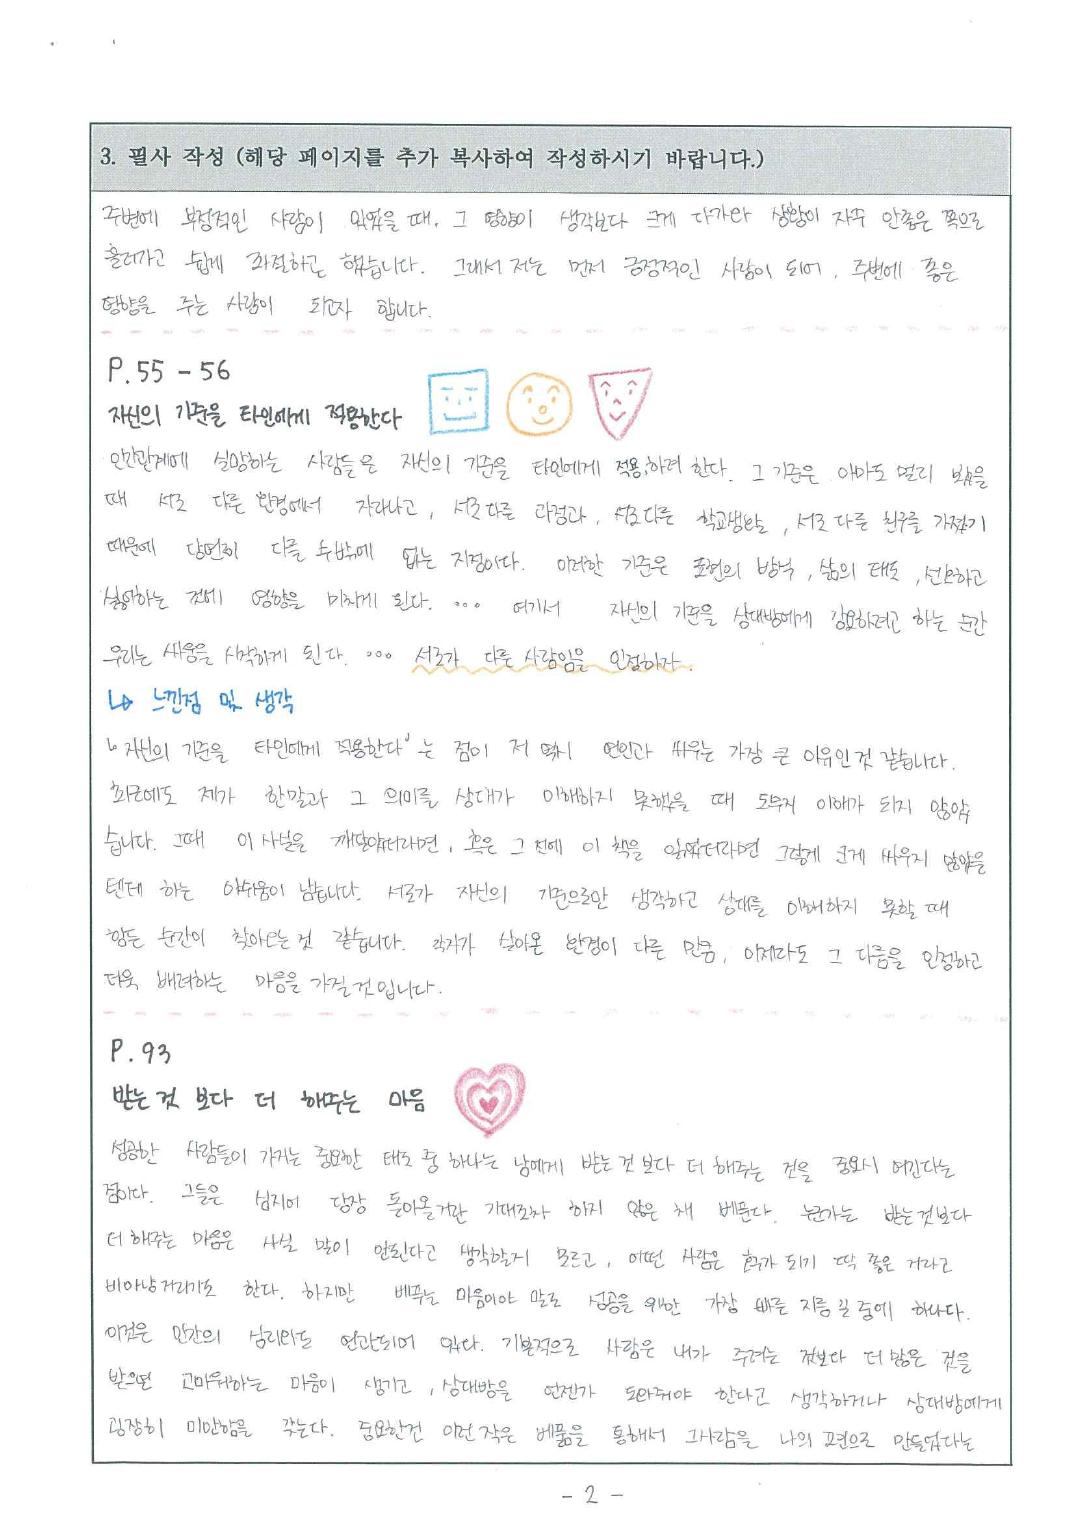 3. 필사 작성 (해당 페이지를 추가 복사하여 작성하시기 바랍니다.)
주변에 부정적인 사람이 있었을 때, 그 영향이 생각보다 크게 다가와 상황이 자주 안좋은 쪽으로
흘러가고 쉽게 좌절하곤 했습니다. 그래서 저는 먼저 긍정적인 사람이 되어, 주변에 좋은
영향을 주는 사람이 되고자 합니다.
P.55 - 56
자신의 기준을 타인에게 적용한다
인간관계에 실망하는 사람들은 자신의 기준을 타인에게 적용하려 한다. 그 기준은 아마도 멀리 봤을
때 서로 다른 환경에서 자라나고, 서로 다른 과정과, 서로 다른 학교생활, 서로 다른 친구를 가졌기
때문에 당연히 다를 수밖에 없는 지점이다. 이러한 기준은 표현의 방식, 삶의 태도, 선호하고
싫어하는 것에 영향을 미치게 된다. ... 여기서 자신의 기준을 상대방에게 강요하려고 하는 순간
우리는 싸움을 시작하게 된다. ... 서로가 다른 사람임을 인정하자.
↳ 느낀점 및 생각
'자신의 기준을 타인에게 적용한다'는 점이 저 역시 연인과 싸우는 가장 큰 이유인 것 같습니다.
최근에도 제가 한말과 그 의미를 상대가 이해하지 못했을 때 도무지 이해가 되지 않았
습니다. 그때 이 사실을 깨달았더라면, 혹은 그 전에 이 책을 읽었더라면 그렇게 크게 싸우지 않았을
텐데 하는 아쉬움이 남습니다. 서로가 자신의 기준으로만 생각하고 상대를 이해하지 못할 때
힘든 순간이 찾아오는 것 같습니다. 각자가 살아온 환경이 다른 만큼, 이제라도 그 다름을 인정하고
더욱 배려하는 마음을 가질 것입니다.
P.93
받는 것 보다 더 해주는 마음
성공한 사람들이 가지는 중요한 태도 중 하나는 남에게 받는 것 보다 더 해주는 것을 중요시 여긴다는
점이다. 그들은 심지어 당장 돌아올거란 기대조차 하지 않은 채 베푼다. 누군가는 받는 것보다
더 해주는 마음은 사실 말이 안된다고 생각할지 모르고, 어떤 사람은 호구가 되기 딱 좋은 거라고
비아냥거리기도 한다. 하지만 베푸는 마음이야 말로 성공을 위한 가장 빠른 지름길 중에 하나다.
이것은 인간의 심리와도 연관되어 있다. 기본적으로 사람은 내가 주려는 것보다 더 많은 것을
받으면 고마워하는 마음이 생기고, 상대방을 언젠가 도와줘야 한다고 생각하거나 상대방에게
굉장히 미안함을 갖는다. 중요한건 이런 작은 베풂을 통해서 그사람을 나의 고객으로 만들었다는
- 2 -